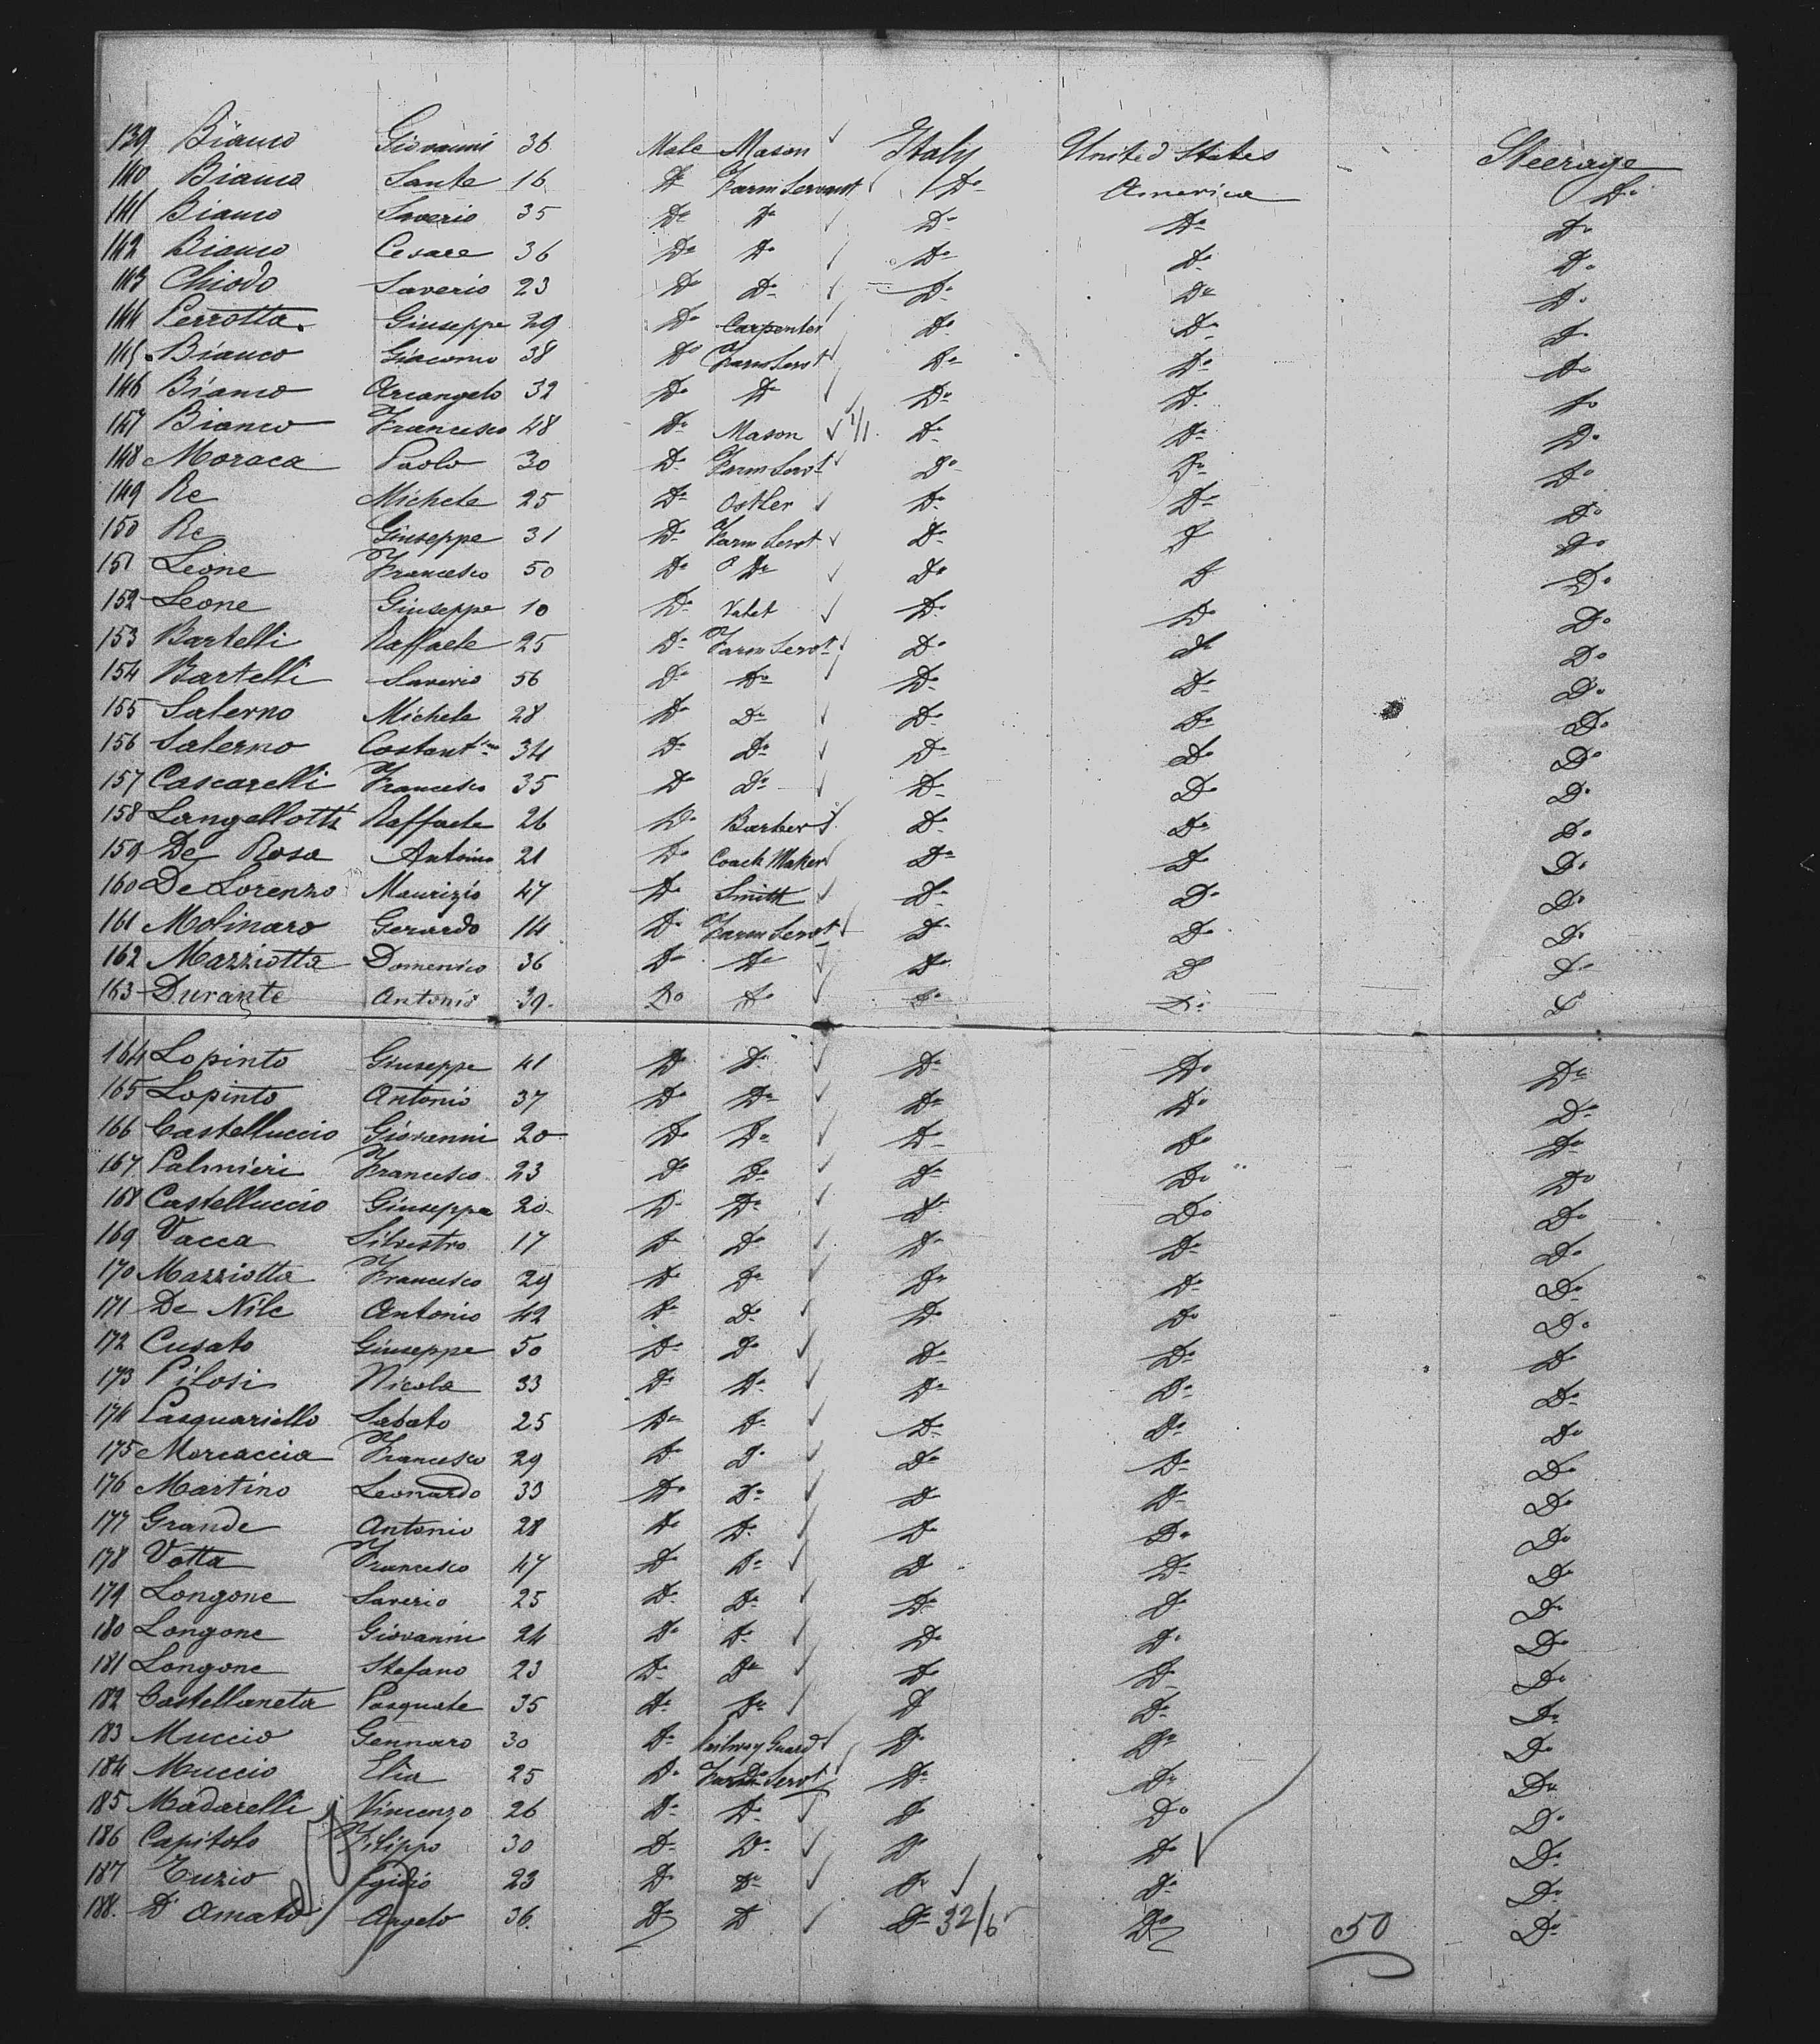 139 Bianco Giovanni 36 Male Mason Italy United States Steerage
140 Bianco Sante 16 Do Farm Servant Do America Do
141 Bianco Saverio 35 Do Do Do Do Do
142 Bianco Cesare 36 Do Do Do Do Do
143 Chiodo Saverio 23 Do Do Do Do Do
144 Perrotta Giuseppe 29 Do Carpenter Do Do Do
145 Bianco Giacomo 38 Do Farm Servt Do Do Do
146 Bianco Arcangelo 32 Do Do Do Do Do
147 Bianco Francesco 48 Do Mason 1/1 Do Do Do
148 Moraca Paolo 30 Do Farm Servt Do Do Do
149 Re Michele 25 Do Ostler Do Do Do
150 Re Giuseppe 31 Do Farm Servt Do Do Do
151 Leone Francesco 50 Do Do Do Do Do
152 Leone Giuseppe 10 Do Valet Do Do Do
153 Bartelli Raffaele 25 Do Farm Servt Do Do Do
154 Bartelli Saverio 56 Do Do Do Do Do
155 Salerno Michele 28 Do Do Do Do Do
156 Salerno Costantino 34 Do Do Do Do Do
157 Cascarelli Francesco 35 Do Do Do Do Do
158 Langellotti Raffaele 26 Do Barber Do Do Do
159 De Rosa Antonio 21 Do Coach Maker Do Do Do
160 De Lorenzo Maurizio 47 Do Smith Do Do Do
161 Molinaro Gerardo 14 Do Farm Servt Do Do Do
162 Mazziotta Domenico 36 Do Do Do Do Do
163 Durante Antonio 39 Do Do Do Do Do
164 Lopinto Giuseppe 41 Do Do Do Do Do
165 Lopinto Antonio 37 Do Do Do Do Do
166 Castelluccio Giovanni 20 Do Do Do Do Do
167 Palmieri Francesco 23 Do Do Do Do Do
168 Castelluccio Giuseppe 20 Do Do Do Do Do
169 Vacca Silvestro 17 Do Do Do Do Do
170 Mazziotta Francesco 29 Do Do Do Do Do
171 De Nile Antonio 42 Do Do Do Do Do
172 Cusato Giuseppe 50 Do Do Do Do Do
173 Pilosi Nicola 33 Do Do Do Do Do
174 Pasquariello Sabato 25 Do Do Do Do Do
175 Morcaccia Francesco 29 Do Do Do Do Do
176 Martino Leonardo 33 Do Do Do Do Do
177 Grande Antonio 28 Do Do Do Do Do
178 Votta Francesco 47 Do Do Do Do Do
179 Longone Saverio 25 Do Do Do Do Do
180 Longone Giovanni 24 Do Do Do Do Do
181 Longone Stefano 23 Do Do Do Do Do
182 Castellaneta Pasquale 35 Do Do Do Do Do
183 Muccio Gennaro 30 Do Railway Guard Do Do Do
184 Muccio Elia 25 Do Farm Servt Do Do Do
185 Madarelli Vincenzo 26 Do Do Do Do Do
186 Capitolo Filippo 30 Do Do Do Do Do
187 Tuzio Egidio 23 Do Do Do Do Do
188. D'Amato Angelo 36. Do Do Do 32/6 Do 50 Do